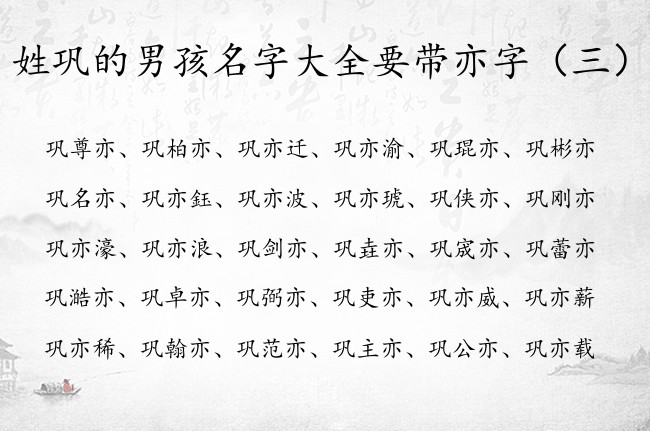 姓巩的男孩名字大全要带亦字（三）
巩尊亦、巩柏亦、巩亦迁、巩亦渝、巩琨亦、巩彬亦
巩名亦、巩亦鈺、巩亦波、巩亦琥、巩侠亦、巩刚亦
巩亦濠、巩亦浪、巩剑亦、巩垚亦、巩宬亦、巩蕾亦
巩澔亦、巩卓亦、巩弼亦、巩吏亦、巩亦威、巩亦薪
巩亦稀、巩翰亦、巩范亦、巩主亦、巩公亦、巩亦载